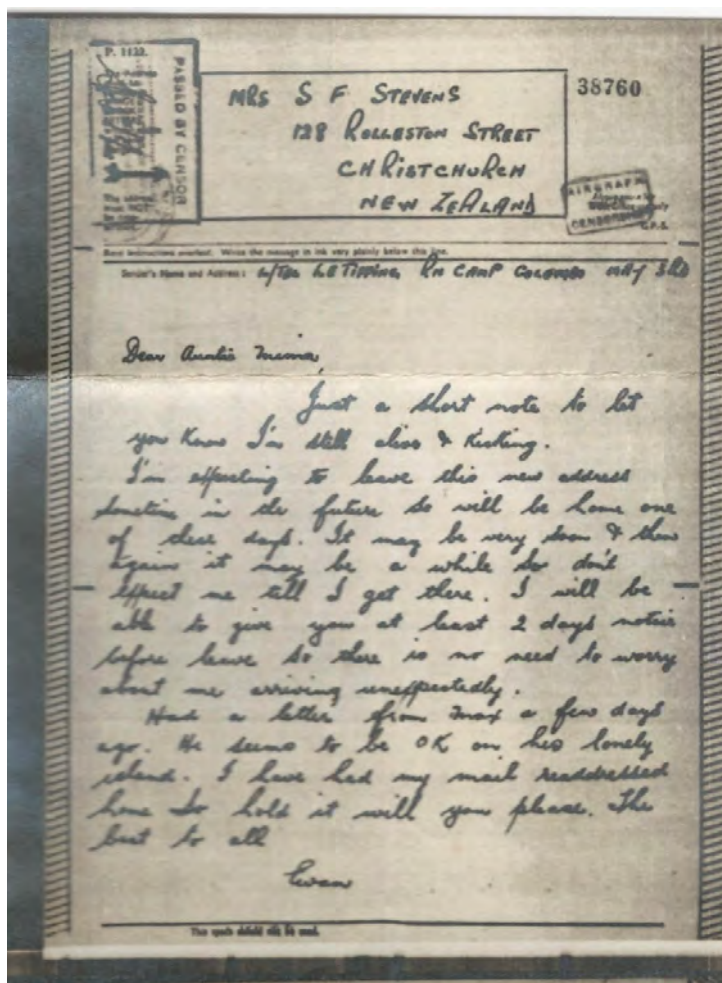 P. 1122.
PASSED BY CENSOR
MRS S F STEVENS
128 ROLLESTON STREET
CHRISTCHURCH
NEW ZEALAND
38760
AIRGRAPH
G.P.S.
Read instructions overleaf. Write the message in ink very plainly below this line.
Sender's Name and Address: L/TEL TIPPING RN CAMP COLOMBO MAY 3RD
Dear Auntie Mima,
Just a short note to let
you know I'm still alive & kicking.
I'm expecting to leave this new address
sometime in the future so will be home one
of these days. It may be very soon & then
again it may be a while so don't
expect me till I get there. I will be
able to give you at least 2 days notice
before leave so there is no need to worry
about me arriving unexpectedly.
Had a letter from Max a few days
ago. He seems to be OK on his lonely
island. I have had my mail readdressed
home so hold it will you please. The
best to all
Ewan
This space should not be used.